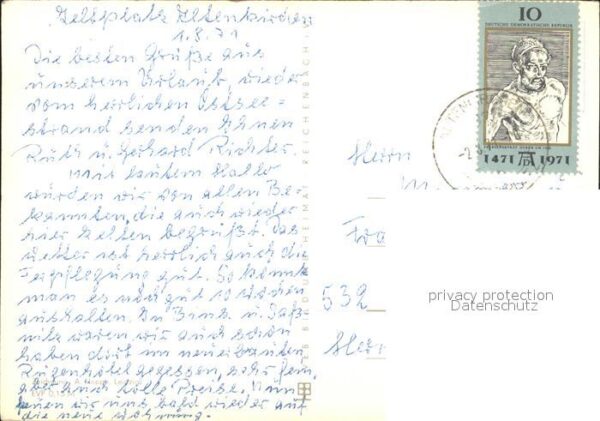 Zeltplatz Altenkirchen
1.8.71
Die besten Grüße aus
unserem Urlaub, wieder
vom herrlichen Ostsee=
strand senden Ihnen
Ruth u. Gerhard Richter.
Mit lautem Hallo
wurden wir von allen Be=
kannten, die auch wieder
hier zelten begrüßt. Das
Wetter ist herrlich auch die
Verpflegung gut. So könnte
man es noch gut 10 Wochen
aushalten. In Binz u. Saß=
nitz waren wir auch schon
haben dort im neuerbauten
Rügenhotel gegessen, sehr fein,
aber auch tolle Preise. Nun
freuen wir uns bald wieder auf
die neue Wohnung.
EVP
REICHENBACH
10
DEUTSCHE DEMOKRATISCHE REPUBLIK
1471 1971
Herrn
Fra
532
privacy protection
Datenschutz